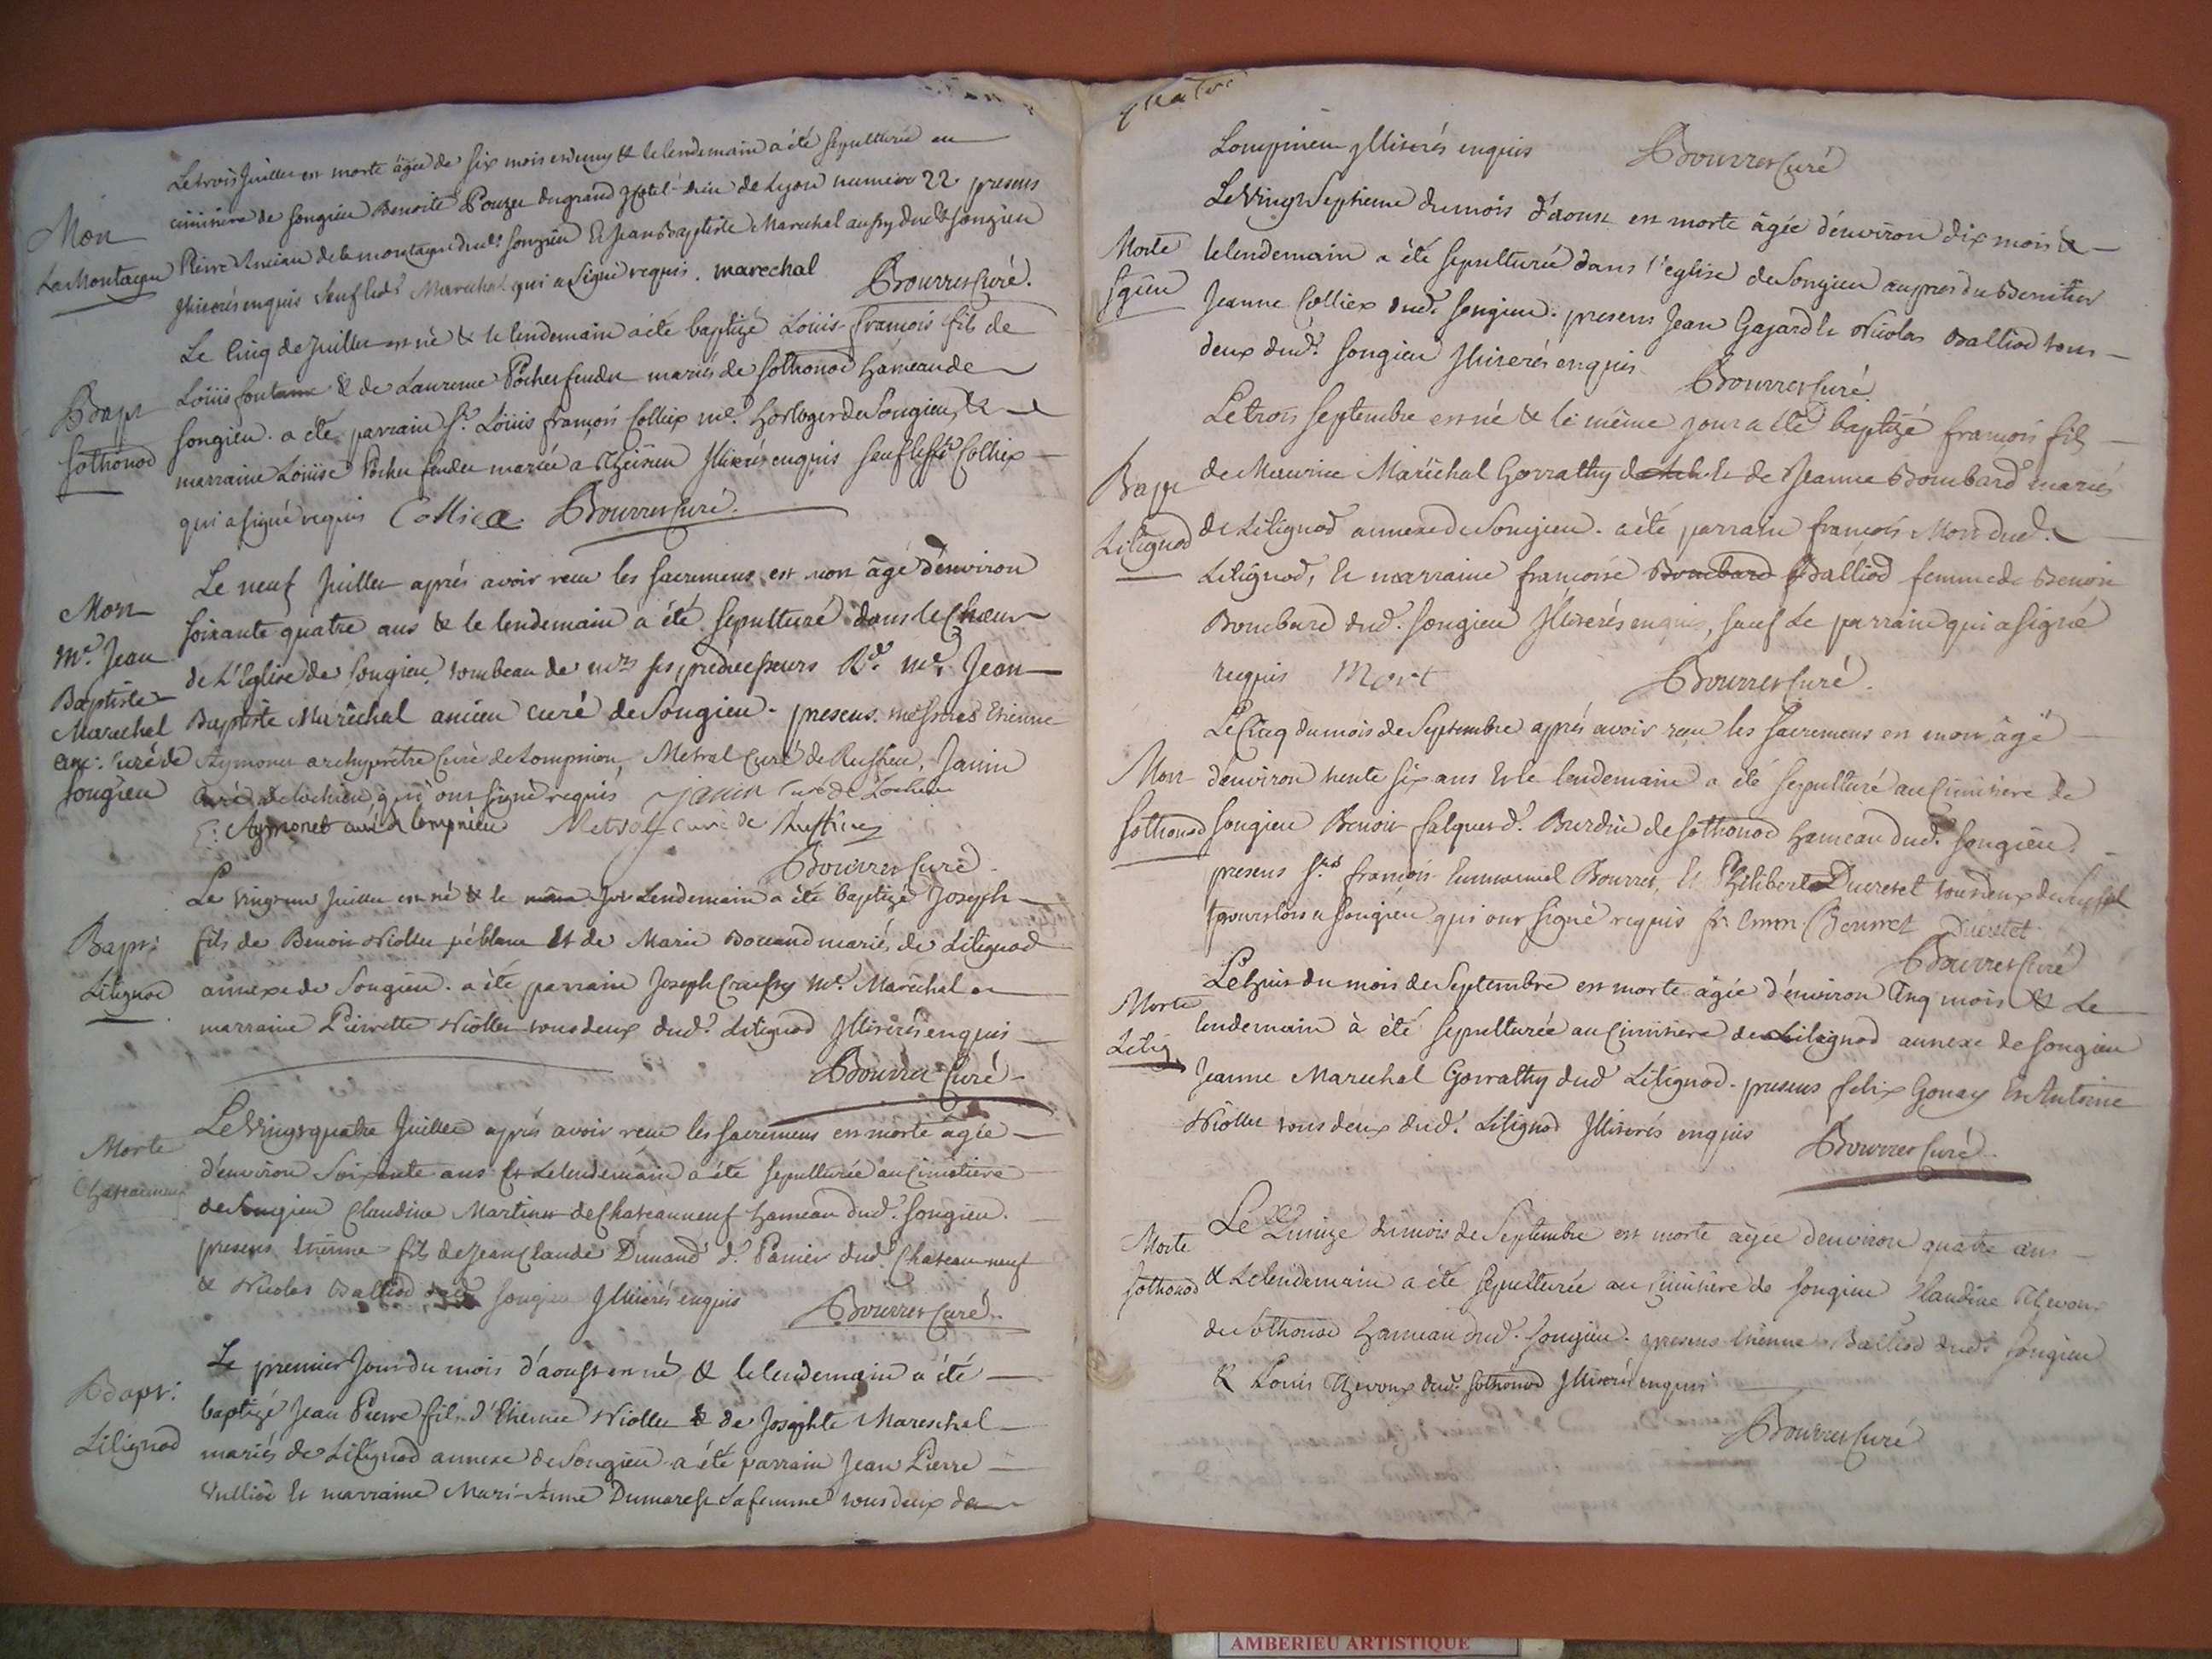 Le trois Juillet est morte âgée de six mois et demy & le lendemain a été sepulturée au
cimitiere de Songieu Benoite Pouzu du grand Hôtel-dieu de Lyon numero 22 presens
Mort
La Montagne
Pierre Ancian de la montagne dud. Songieu Et Jean Baptiste Marechal aussy dud. Songieu
Illiterés enquis sauf led. Marechal qui a signé requis. marechal Bourret Curé.
Le Cinq de Juillet est né & le lendemain a été baptizé Loüis-François fils de
Bapt
Sothonod
Loüis fontaine & de Laurence Pochet fendu mariés de Sothonod Hameau de
Songieu. a été parrain Sr. Loüis françois Colliex me. Horloger de Songieu, &
marraine Loüise Pochet fendu mariée a Illiterés enquis sauf led. Sr. Colliex
qui a signé requis Colliex Bourret Curé.
Mort
Mre. Jean
Baptiste
Marechal
anc. Curé de
Songieu
Le neuf Juillet aprés avoir reçu les sacremens est mort âgé d'environ
soixante quatre ans & le lendemain a été sepulturé dans le Chœur
de L'Eglise de Songieu tombeau de mrs ses prédecesseurs Rd. me. Jean
Baptiste Marêchal ancien curé de Songieu. presens messires Etienne
Aymonet archyprêtre Curé de Lompnieu, Metral Curé de Ruffieu, Janin
Curé de Lochieu qui ont signé requis Janin Curé de Lochieu
E. Aymonet curé de lompnieu Metral curé de Ruffieu
Bourret Curé
Bapt.
Litignod
Le vingt un Juillet est né & le même jor Lendemain a été baptizé Joseph
fils de Benoit Niollet péblanc Et de Marie Boccand mariés de Litignod
annexe de Songieu. a été parrain Joseph Craissy me. Maréchal &
marraine Pierrette Niollet tous deux dud. Litignod Illiterés enquis
Bourret Curé
Morte
Chateauneuf
Le vingt quatre Juillet aprés avoir reçu les sacremens est morte âgée
d'environ Soixante ans Et Lelendemain a été sepulturée au Cimetiere
de Songieu Claudine Martinet de Chateauneuf hameau dud. Songieu.
presens Etienne fils de Jean Claude Dunand d. Panier dud. Chateauneuf
& Nicolas Balliod dud. Songieu Illiterés enquis Bourret Curé.
Bapt.
Litignod
Le premier Jour du mois d'aoust est né & le lendemain a été
baptizé Jean Pierre fils d'Etienne Niollet & de Josephte Mareschal
mariés de Litignod annexe de Songieu. a été parrain Jean Pierre
Vulliod Et marraine Marie-Anne Dumarest sa femme tous deux de
quatre
Lompnieu Illiterés enquis Bourret Curé
Morte
Sgieu
Le Vingt Septieme du mois d'aoust est morte âgée d'environ dix mois &
le lendemain a été sepulturée dans l'eglise de Songieu aupres du Benitier
Jeanne Colliex dud. Songieu. presens Jean Gajard & Nicolas Balliod tous
deux dud. Songieu Illiterés enquis Bourret Curé
Bapt
Litignod
Le trois Septembre est né & le même jour a été baptizé françois fils
de Maurice Marêchal Gorrathy & de Jeanne Bombard mariés
de Litignod annexe de Songieu. a été parrain françois Mort dud.
Litignod, Et marraine françoise Bombard Balliod femme de Benoit
Bombard dud. Songieu Illiterés enquis, sauf Le parrain qui a signé
requis Mort Bourret Curé.
Mort
Sothonod
Le Cinq du mois de Septembre aprés avoir reçu les sacremens est mort âgé
d'environ trente six ans Et le lendemain a été sepulturé au Cimitiere de
Songieu Benoit falquet d. Burdin de Sothonod hameau dud. Songieu.
presens Srs françois Emmanuel Bourret, Et Philibert Ducretet tous deux de
pour lors a Songieu qui ont signé requis fr. Emm. Bourret Ducretet
Bourret Curé
Morte
Litig
Le huit du mois de Septembre est morte âgée d'environ Cinq mois & Le
lendemain à été sepulturée au Cimitiere de Litignod annexe de Songieu
Jeanne Marechal Gorrathy dud Litignod. presens felix Gonay Et Antoine
Niollet tous deux dud. Litignod Illiterés enquis Bourret Curé.
Morte
Sothonod
Le Quinze du mois de Septembre est morte âgée d'environ quatre ans
& Lelendemain a été sepulturée au cimitiere de Songieu Claudine Thevoux
de Sothonod Hameau dud. Songieu. presens Etienne Balliod dud. Songieu
& Louis Thevoux dud. Sothonod Illiterés enquis
Bourret Curé
AMBERIEU ARTISTIQUE